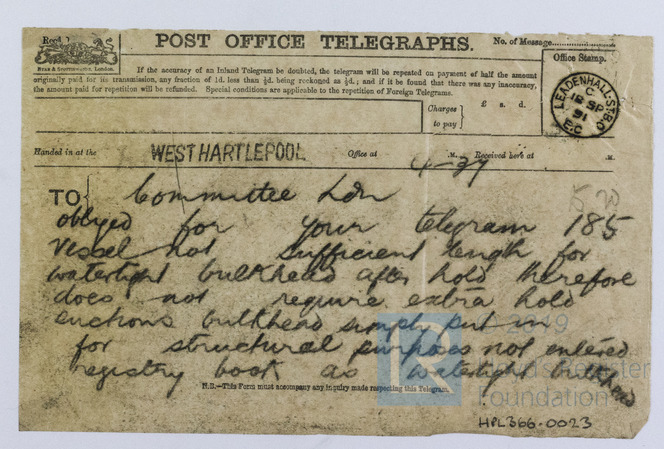 Recd
POST OFFICE TELEGRAPHS.
No. of Message
If the accuracy of an Inland Telegram be doubted, the telegram will be repeated on payment of half the amount
originally paid for its transmission, any fraction of 1d. less than ½d. being reckoned as ½d.; and if it be found that there was any inaccuracy,
the amount paid for repetition will be refunded. Special conditions are applicable to the repetition of Foreign Telegrams.
Office Stamp.
LEADENHALL-ST.B.O
C
18 SP
91
E.C
Charges to pay
£ s. d.
Handed in at the WEST HARTLEPOOL Office at 4-37 .M. Received here at .M.
TO Committee Ldn
obliged for your telegram 185
vessel not sufficient length for
watertight bulkhead after hold therefore
does not require extra hold
bulkhead simply put in
for structural purposes not entered
registry book as watertight bulkhead
N.B.—This Form must accompany any inquiry made respecting this Telegram.
2019
Foundation
HPL366-0023